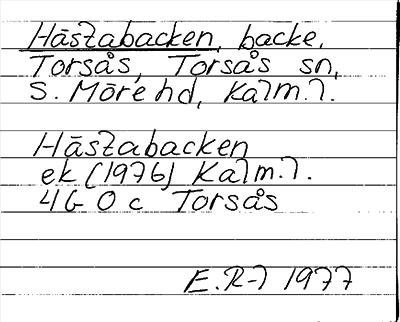 Hästabacken, backe,
Torsås, Torsås sn,
S. Möre hd, Kalm. l.
Hästabacken
ek (1976) Kalm. l.
4G 0 c Torsås
E.R-l 1977